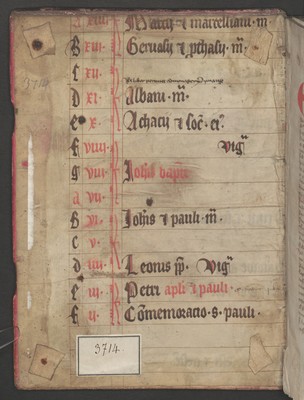 A xiiii kl Marci et marcelliani m
B xiii Geruasij et pthasij m̄.
C xii.
D xi. Albani m̄.
e x. Achacii et soc̄ ei᷒
f viiii. vig̃
g viii Joh̃is bapt̄
a vii.
B vi. Joh̃is et pauli m̄.
C v.
d iiii Leonis pp̄. vig̃
e iii Petri apl̄i et pauli.
f ii. Cōmemoracio s. pauli.
3714
3714